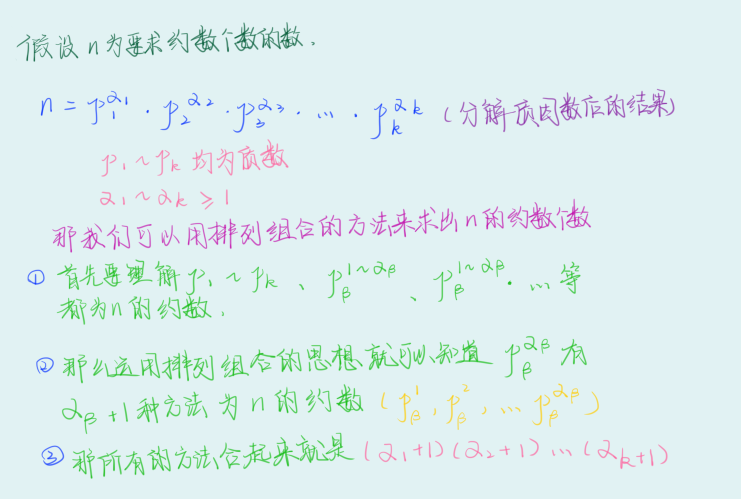 假设n为要求约数个数的数.
n = p₁^α₁ · p₂^α₂ · p₃^α₃ · … · pₖ^αₖ (分解质因数后的结果)
p₁~pₖ 均为质数
α₁~αₖ ⩾ 1
那我们可以用排列组合的方法来求出n的约数个数
① 首先要理解p₁~pₖ、p_β^1~α_β、p_β^1~α_β · … 等
都为n的约数.
② 那么运用排列组合的思想就可以知道 p_β^α_β 有
α_β+1种方法为n的约数 (p_β^1, p_β^2, … p_β^α_β)
③ 那所有的方法合起来就是 (α₁+1)(α₂+1)…(αₖ+1)